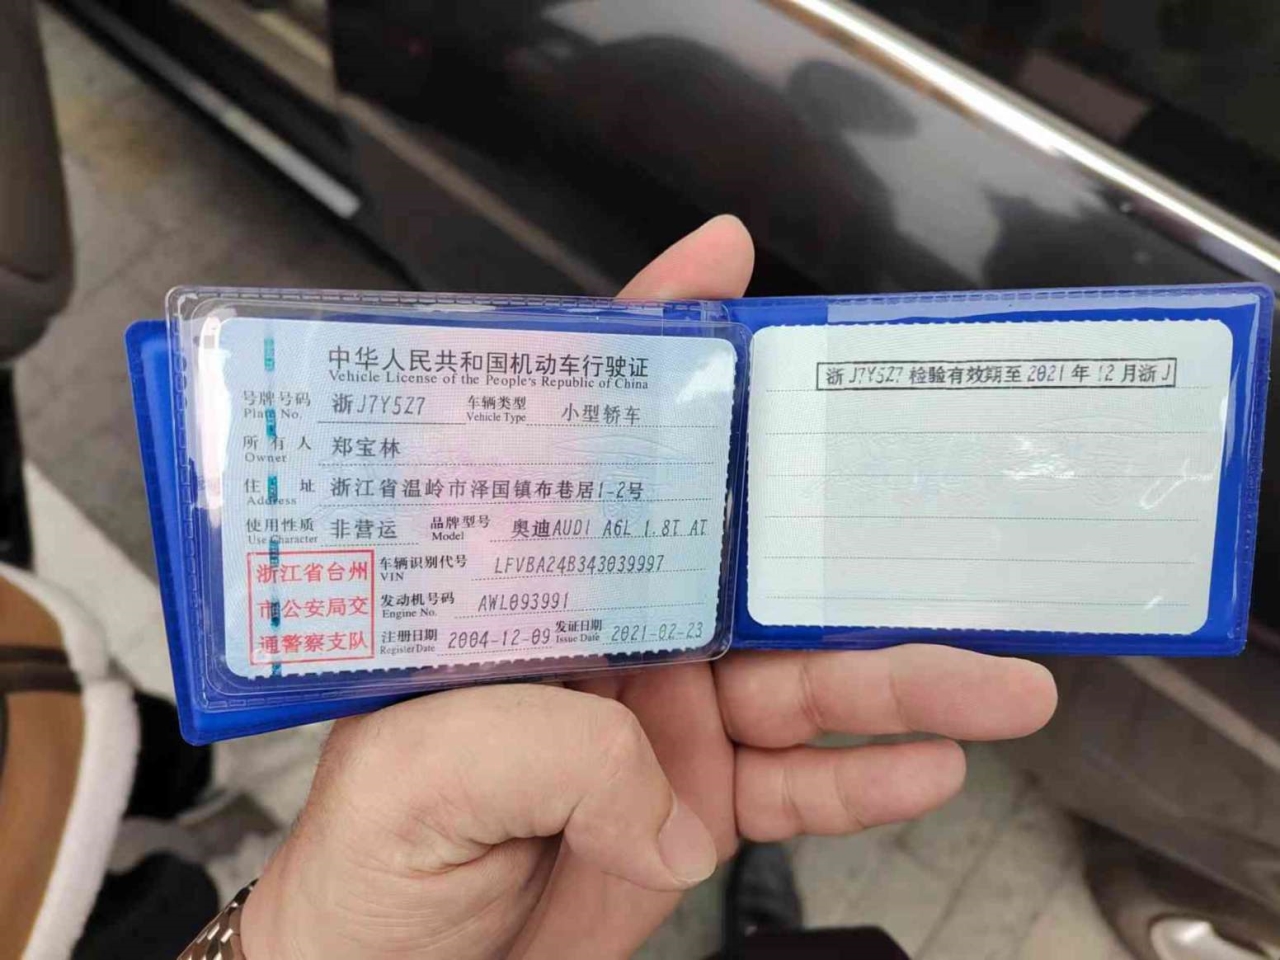 中华人民共和国机动车行驶证
Vehicle License of the People's Republic of China
号牌号码 浙J7Y5Z7 车辆类型 小型轿车
Plate No. Vehicle Type
所有人 郑宝林
Owner
住址 浙江省温岭市泽国镇布巷居1-2号
Address
使用性质 非营运 品牌型号 奥迪AUDI A6L 1.8T AT
Use Character Model
浙江省台州
市公安局交
通警察支队
车辆识别代号 LFVBA24B343039997
VIN
发动机号码 AWL093991
Engine No.
注册日期 2004-12-09 发证日期 2021-02-23
Register Date Issue Date
浙J7Y5Z7检验有效期至2021年12月浙J